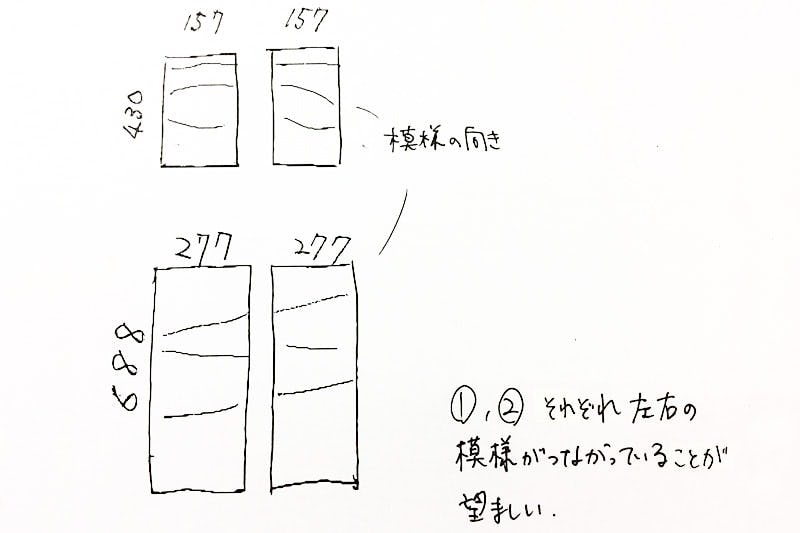 157 157
430
模様の向き
277 277
688
①, ② それぞれ 左右の
模様がつながっていることが
望ましい.